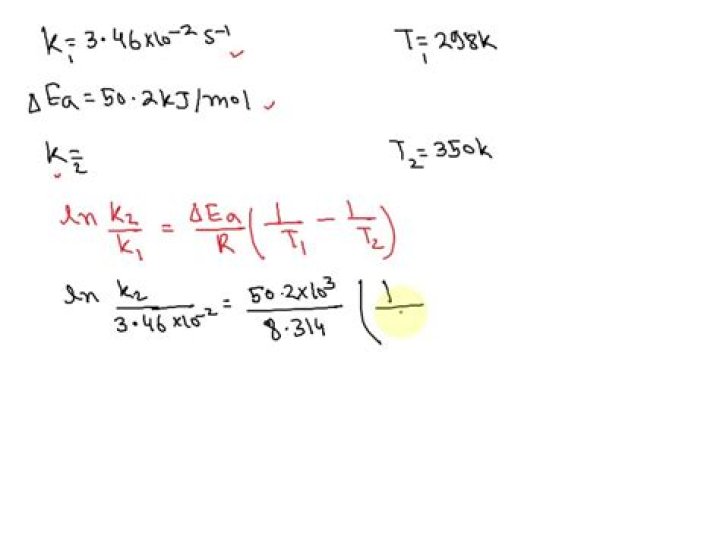 k₁ = 3.46×10⁻² s⁻¹ T₁ = 298k
ΔEa = 50.2kJ/mol
k₂ = T₂ = 350k
ln k₂/k₁ = ΔEa/R (1/T₁ − 1/T₂)
ln k₂/3.46×10⁻² = 50.2×10³/8.314 (1/